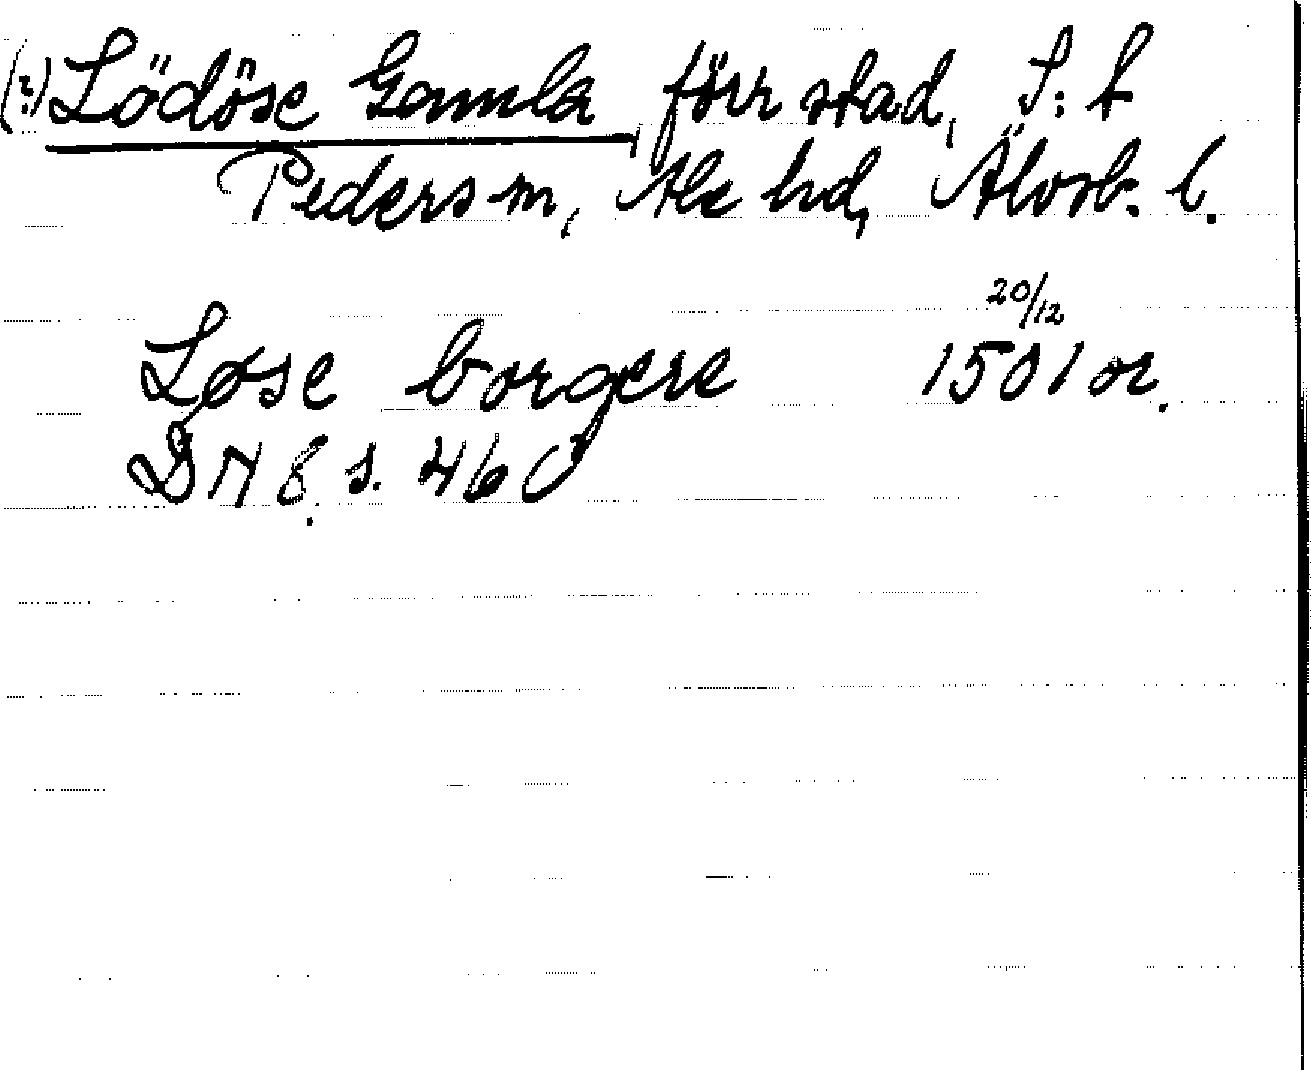 (?) Lödöse Gamla, förr stad, S:t
Peders sn, Ale hd, Älvsb. l.
Løse borgere 20/12 1501 or.
DN 8. s. 460